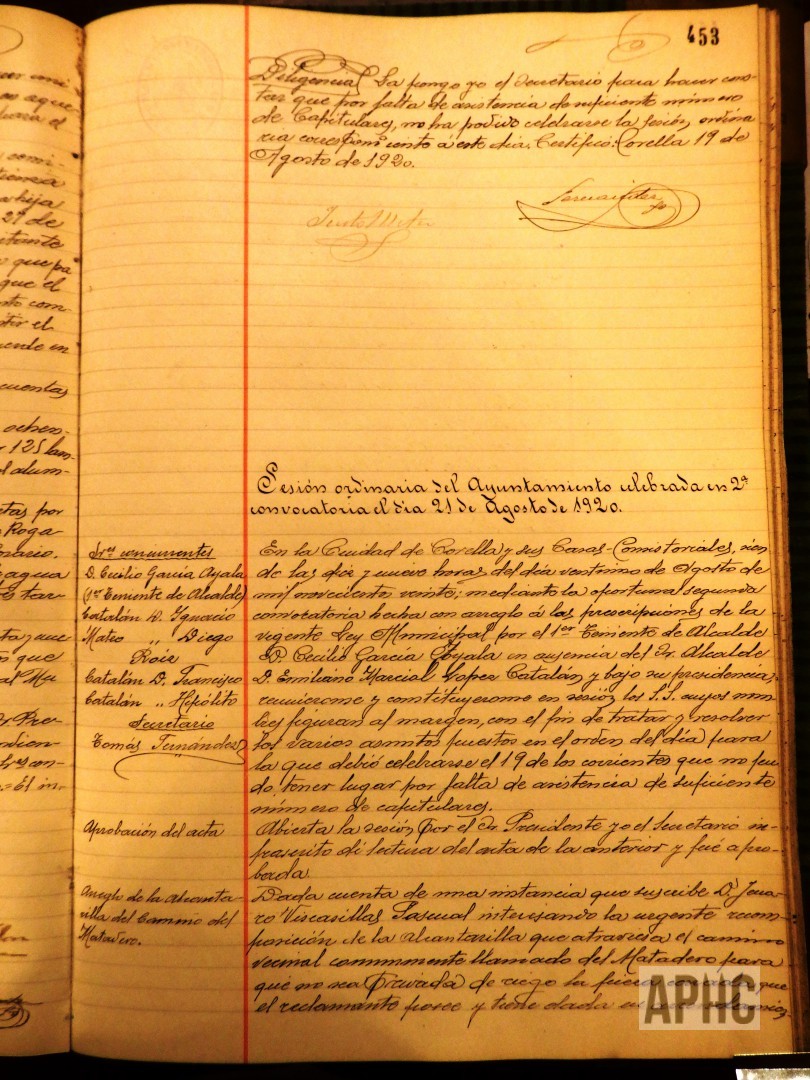 453
Diligencia La pongo yo el Secretario para hacer cons-
tar que por falta de asistencia de suficiente número
de Capitulares, no ha podido celebrarse la Sesión ordina
ria correspondiente á este dia. Certifico: Corella 19 de
Agosto de 1920.
Fernández
Sesión ordinaria del Ayuntamiento celebrada en 2ª
convocatoria el dia 21 de Agosto de 1920.
Sres concurrentes
D. Cecilio García Ayala
(1er Teniente de Alcalde)
Catalán D. Ignacio
Mateo „ Diego
Roiz
Catalán D. Francisco
Catalán „ Hipólito
Secretario
Tomás Fernández
En la Ciudad de Corella y sus Casas-Comistoriales, sien
do las diez y nueve horas del día veintiuno de Agosto de
mil novecientos veinte; mediante la oportuna segunda
convocatoria hecha con arreglo á las prescripciones de la
vigente Ley Municipal por el 1er Teniente de Alcalde
D. Cecilio García Ayala en ausencia del Sr. Alcalde
D. Emiliano Marcial Lopez Catalán y bajo su presidencia,
reunieronse y constituyeronse en sesión los S.S. cuyos nom
bres figuran al margen, con el fin de tratar y resolver
los varios asuntos puestos en el orden del día para
la que debió celebrarse el 19 de los corrientes que no pu
do tener lugar por falta de asistencia de suficiente
número de capitulares.
Aprobación del acta
Abierta la sesión por el Sr. Presidente yo el Secretario in-
frascrito di lectura del acta de la anterior y fué apro-
bada.
Arreglo de la alcanta-
rilla del Camino del
Matadero.
Dada cuenta de una instancia que suscribe D. Jena
ro Viscasillas Pascual interesando la urgente recom-
posición de la alcantarilla que atraviesa el camino
vecinal comunmente llamado del Matadero para
que no sea privada de riego la pieza que
el reclamante posee y tiene dada
APHC